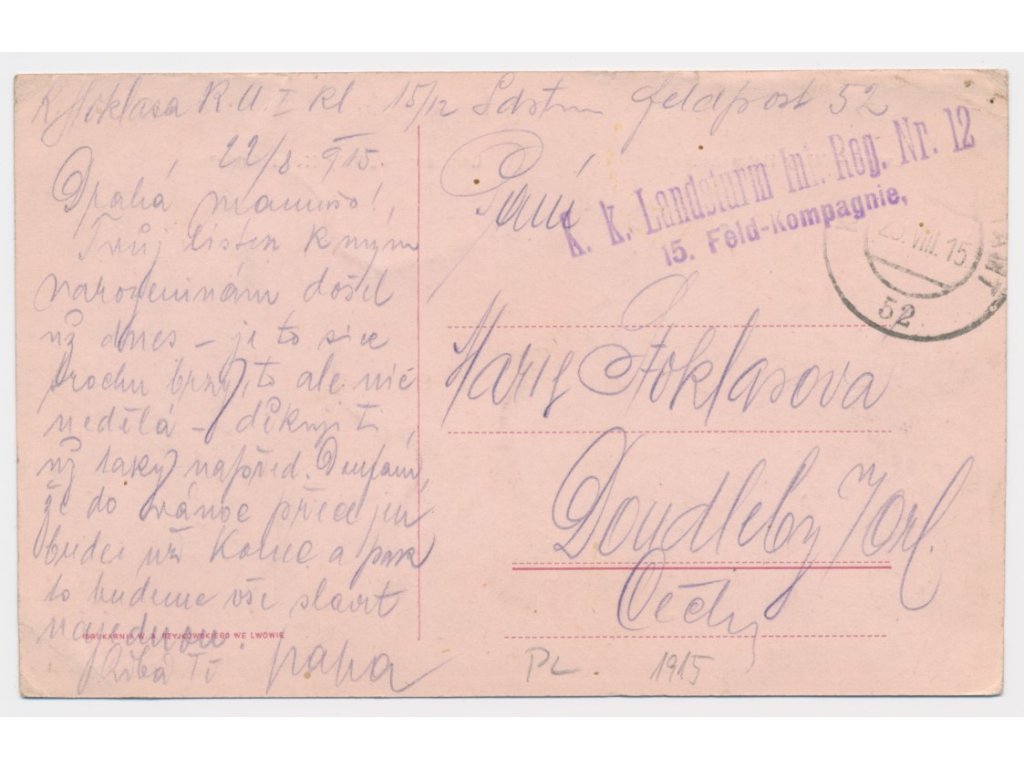 K Stoklasa R.U.I kl. 15/12 Ldstrm Feldpost 52
22/8 915.
Drahá mamušo!,
Tvůj lístek k mým
narozeninám došel
už dnes – je to sice
trochu brzy, to ale nic
nedělá – děkuji ti
už taky napřed. Doufám,
že do vánoc přece jen
bude už konec a pak
to budeme vše slavit
najednou.
Líbá Tě papa
DRUKARNIA W. A. SZYJKOWSKIEGO WE LWOWIE
Paní
K. k. Landsturm Inf. Reg. Nr. 12
15. Feld-Kompagnie,
23. VIII. 15
52
Marie Stoklasova
Doudleby /Orl.
Čechy
PL. 1915